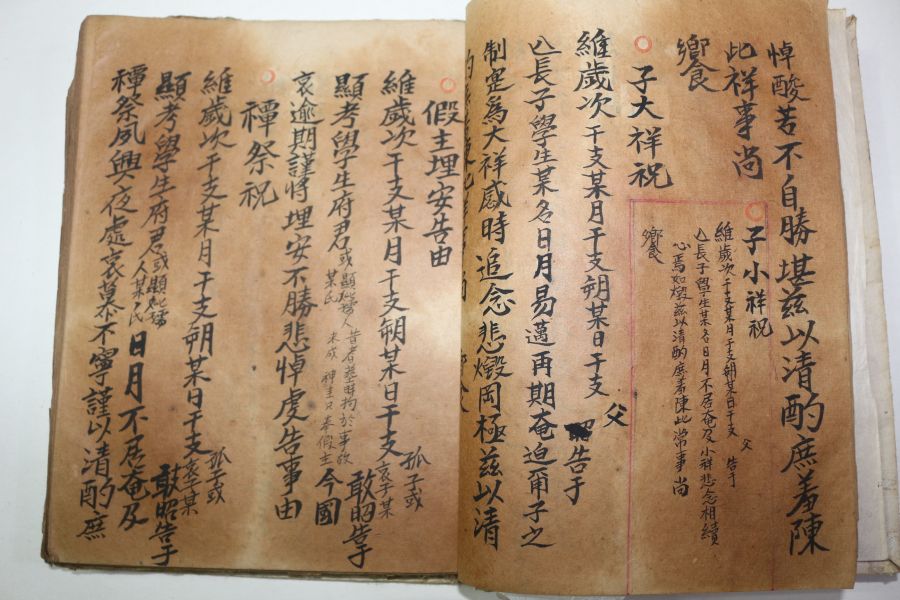 悼酸苦不自勝堪玆以清酌庶羞陳
此祥事尚
饗
子小祥祝
維歲次干支某月干支朔某日干支 父 告于
亾長子學生某名日月不居奄及小祥悲念相續
心焉如燬玆以清酌庶羞陳此常事尚
饗
子大祥祝
維歲次干支某月干支朔某日干支 父 告于
亾長子學生某名日月易邁再期奄迫甭子之
制定爲大祥感時追念悲燬罔極玆以清
假主埋安告由
維歲次干支某月干支朔某日干支孤子或哀子某敢昭告于
顯考學生府君或顯妣孺人某氏昔者葬時拘於事故未成神主只奉假主今國
哀逾期謹將埋安不勝悲悼虔告事由
禫祭祝
維歲次干支某月干支朔某日干支孤子或哀子某敢昭告于
顯考學生府君或顯妣孺人某氏日月不居奄及
禫祭夙興夜處哀慕不寧謹以清酌庶